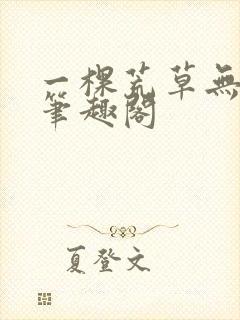 一棵荒草無
筆趣閣
夏登文